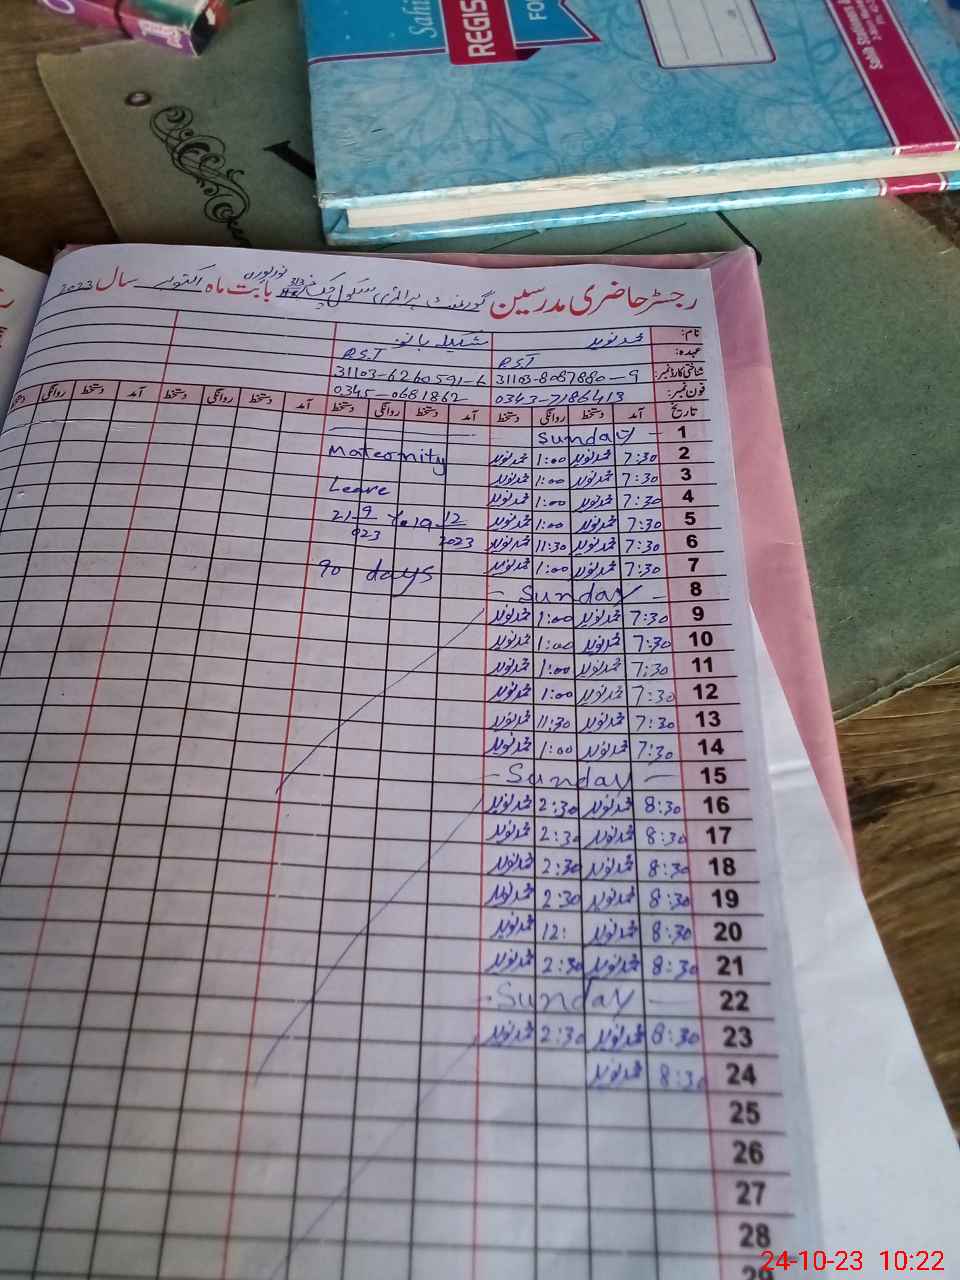 Sahi
REGIS
FO
رجسٹر حاضری مدرسین گورنمنٹ پرائمری سکول چک نمبر 313 نورپوری بابت ماہ اکتوبر سال 2023
نام: محمد نوید شکیلہ بانو
عہدہ: PST PST
شناختی کارڈ نمبر: 31103-8087880-9 31103-6260591-6
فون نمبر: 0343-7186413 0345-0681862
تاریخ آمد دستخط روانگی دستخط آمد دستخط روانگی دستخط آمد دستخط روانگی دستخط آمد دستخط روانگی
1 Sunday
2 7:30 محمد نوید 1:00 محمد نوید Maternity
3 7:30 محمد نوید 1:00 محمد نوید
4 7:30 محمد نوید 1:00 محمد نوید Leave
5 7:30 محمد نوید 1:00 محمد نوید 21-9-023 To 19-12-2023
6 7:30 محمد نوید 11:30 محمد نوید
7 7:30 محمد نوید 1:00 محمد نوید 90 days
8 Sunday
9 7:30 محمد نوید 1:00 محمد نوید
10 7:30 محمد نوید 1:00 محمد نوید
11 7:30 محمد نوید 1:00 محمد نوید
12 7:30 محمد نوید 1:00 محمد نوید
13 7:30 محمد نوید 11:30 محمد نوید
14 7:30 محمد نوید 1:00 محمد نوید
15 Sunday
16 8:30 محمد نوید 2:30 محمد نوید
17 8:30 محمد نوید 2:30 محمد نوید
18 8:30 محمد نوید 2:30 محمد نوید
19 8:30 محمد نوید 2:30 محمد نوید
20 8:30 محمد نوید 12: محمد نوید
21 8:30 محمد نوید 2:30 محمد نوید
22 Sunday
23 8:30 محمد نوید 2:30 محمد نوید
24 8:30 محمد نوید
25
26
27
28
29
24-10-23 10:22